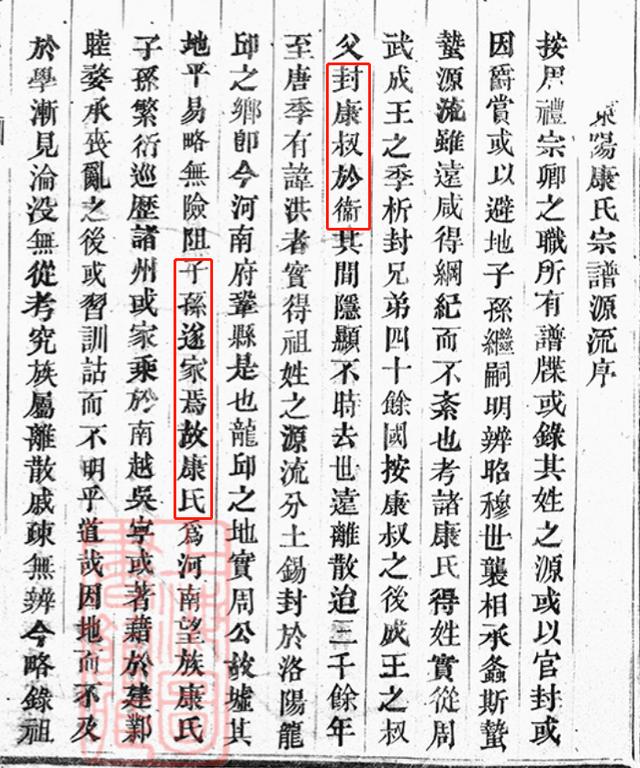 東陽康氏宗譜源流序
按周禮宗卿之職所有譜牒或錄其姓之源或以官封或
因爵賞或以避地子孫繼嗣明辨昭穆世襲相承螽斯蟄
蟄源流雖遠咸得綱紀而不紊也考諸康氏得姓實從周
武成王之季析封兄弟四十餘國按康叔之後成王之叔
父封康叔於衞其間隱顯不時去世遠離散迨二千餘年
至唐季有諱洪者實得祖姓之源流分土錫封於洛陽龍
邱之鄉卽今河南府鞏縣是也龍邱之地實周公故墟其
地平易略無險阻子孫遂家焉故康氏爲河南望族康氏
子孫繁衍巡歷諸州或家乘於南越吳寧或著藉於建鄴
睦婺承喪亂之後或習訓詁而不明乎道哉因地而不及
於學漸見淪没無從考究族屬離散戚疎無辨今略錄祖